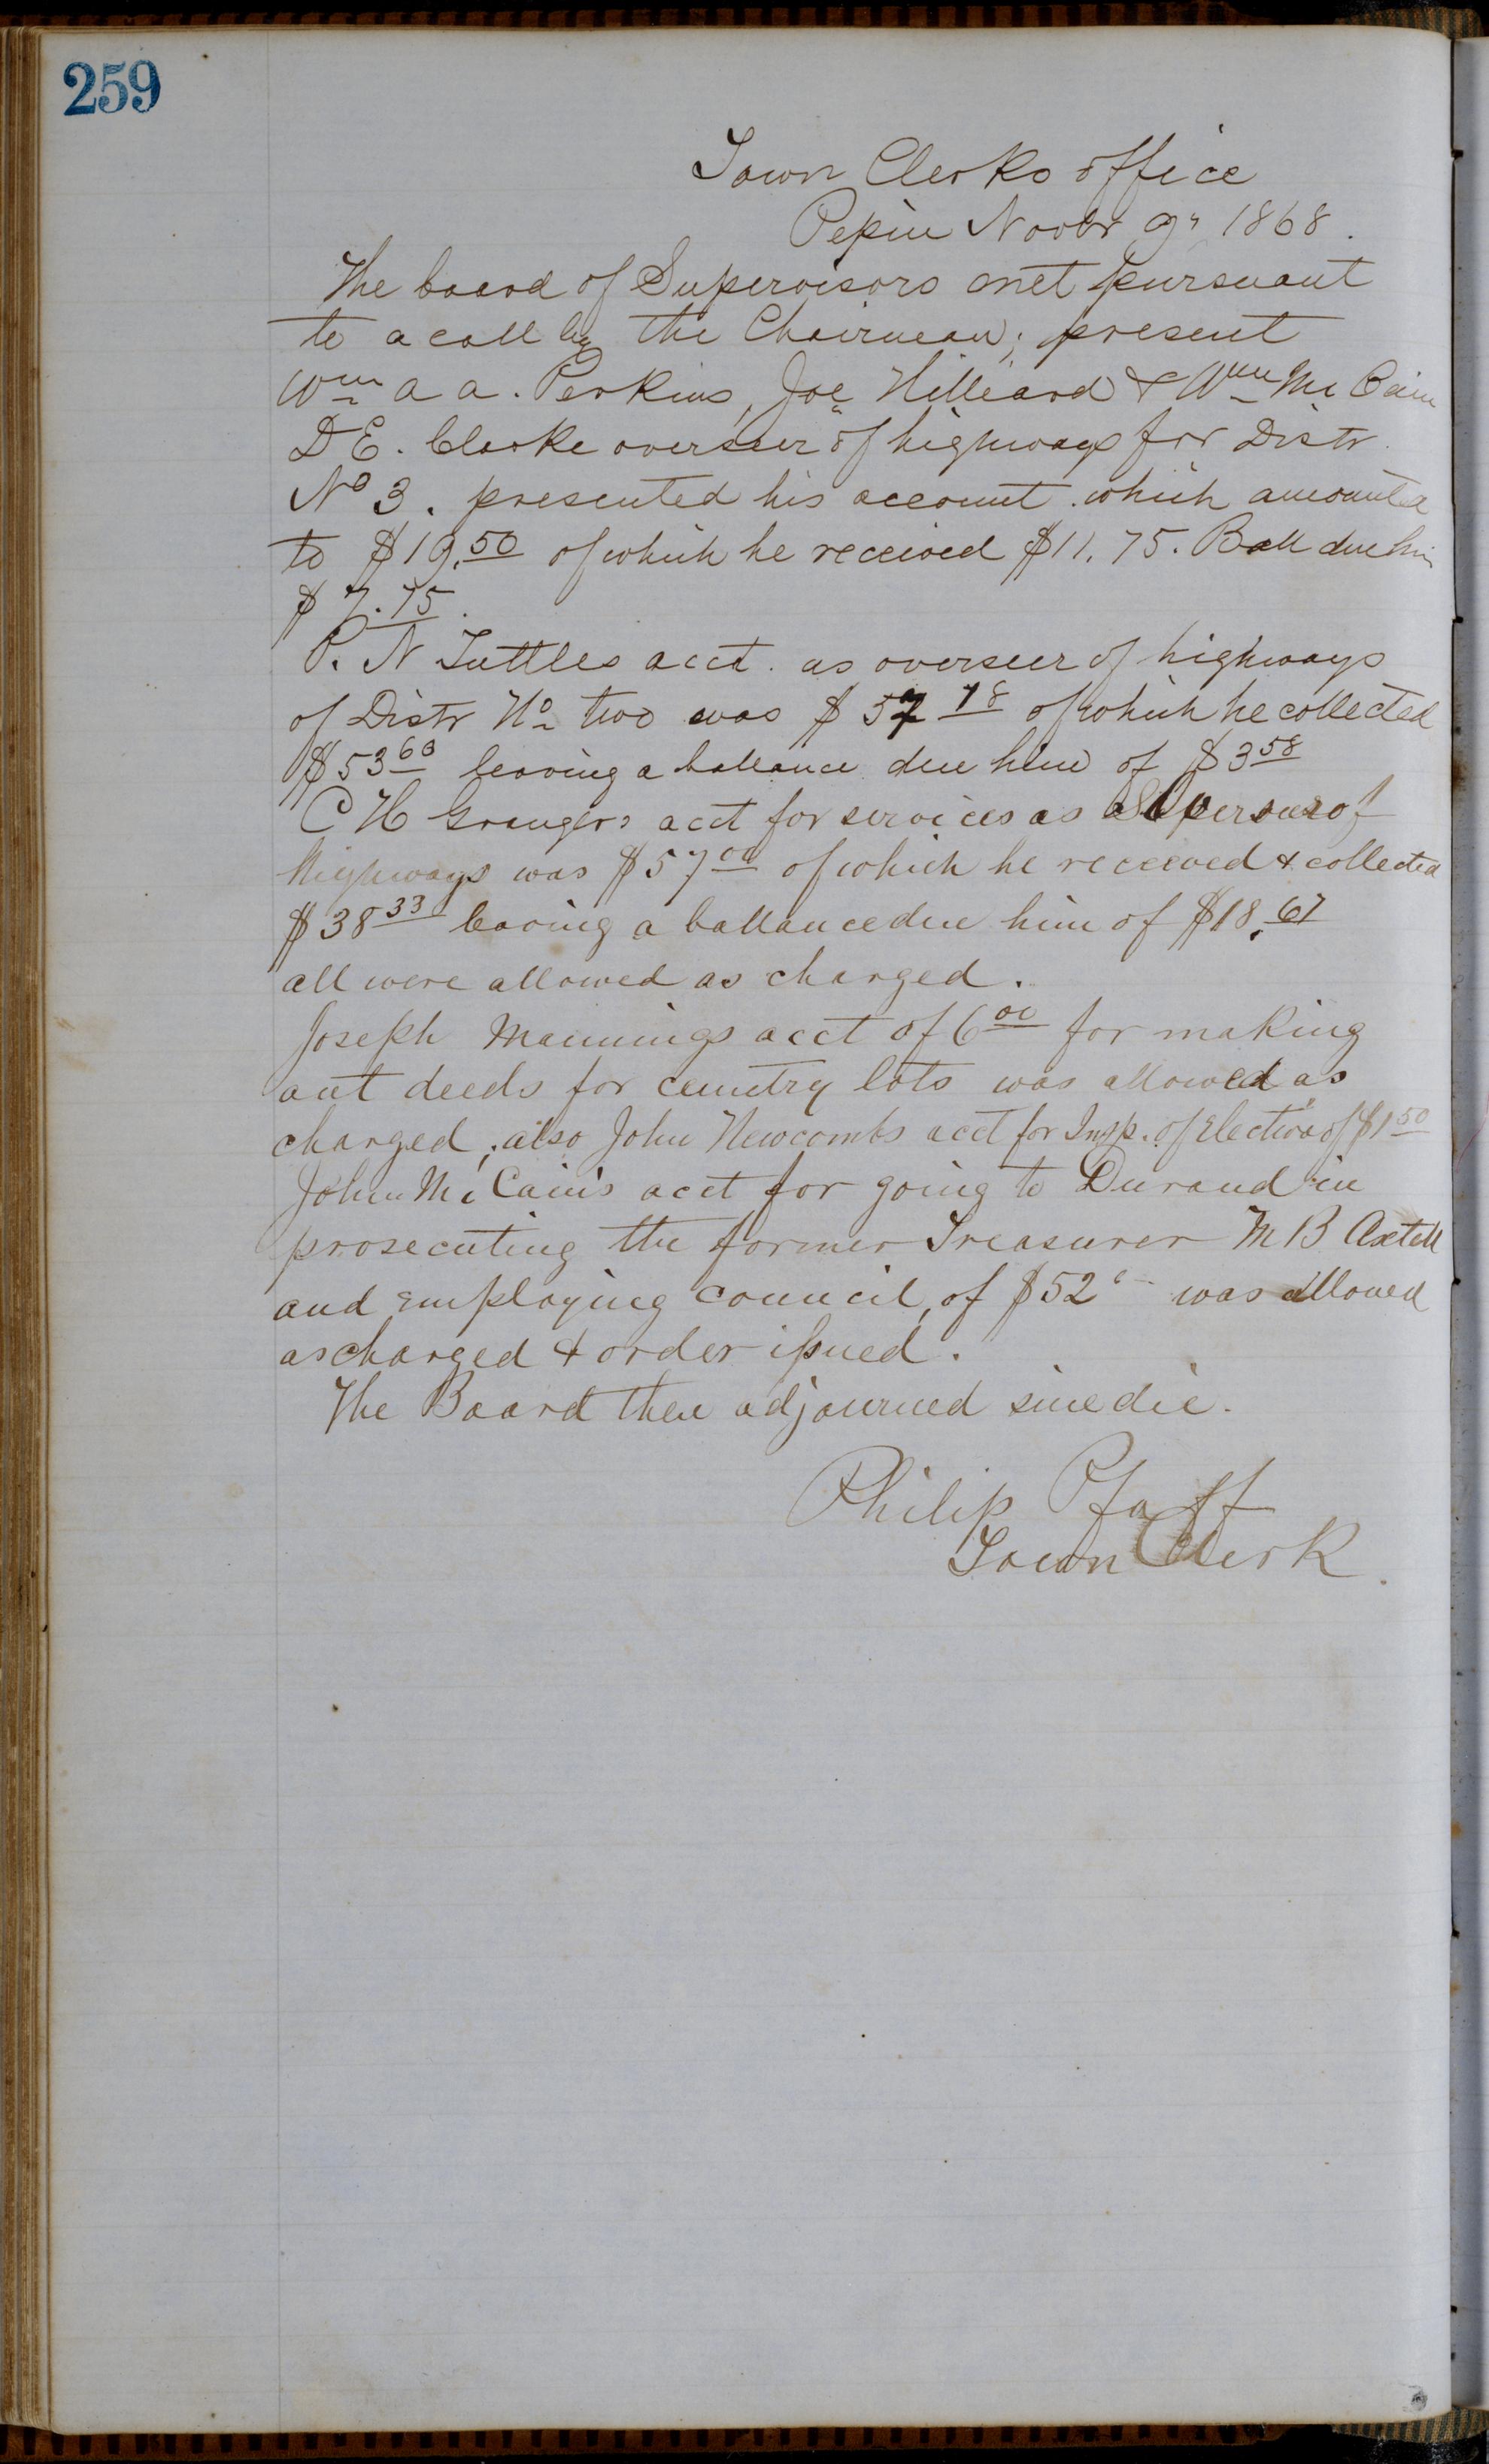 259
Town Clerks office
Pepin Novbr 9" 1868.
The board of Supervisors met pursuant
to a call by the Chairman; present
Wm a a. Perkins, Joe Hilleard & Wm Mc Cain
D E. Clarke overseer of highways for Distr
No 3. presented his account. which amounted
to $19.50 of which he received $11.75. Ball due him
$7.75.
P. N Tuttles acct. as overseer of highways
of Distr No two was $57 18 of which he collected
$53 60 leaving a ballance due him of $3 58
C H Grangers acct for services as Overseer of
highways was $57 00 of which he received & collected
$38 33 leaving a ballance due him of $18.67
all were allowed as charged.
Joseph Mannings acct of 6 00 for making
out deeds for cemetry lots was allowed as
charged; also John Newcombs acct for Insp. of Election of $1 50
John Mc Cain's acct for going to Durand in
prosecuting the former Treasurer M B Axtell
and employing council, of $52 was allowed
as charged & order issued.
The Board then adjourned sine die.
Philip Pfaff
Town Clerk.